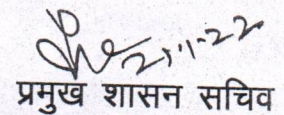 21-1-22
प्रमुख शासन सचिव